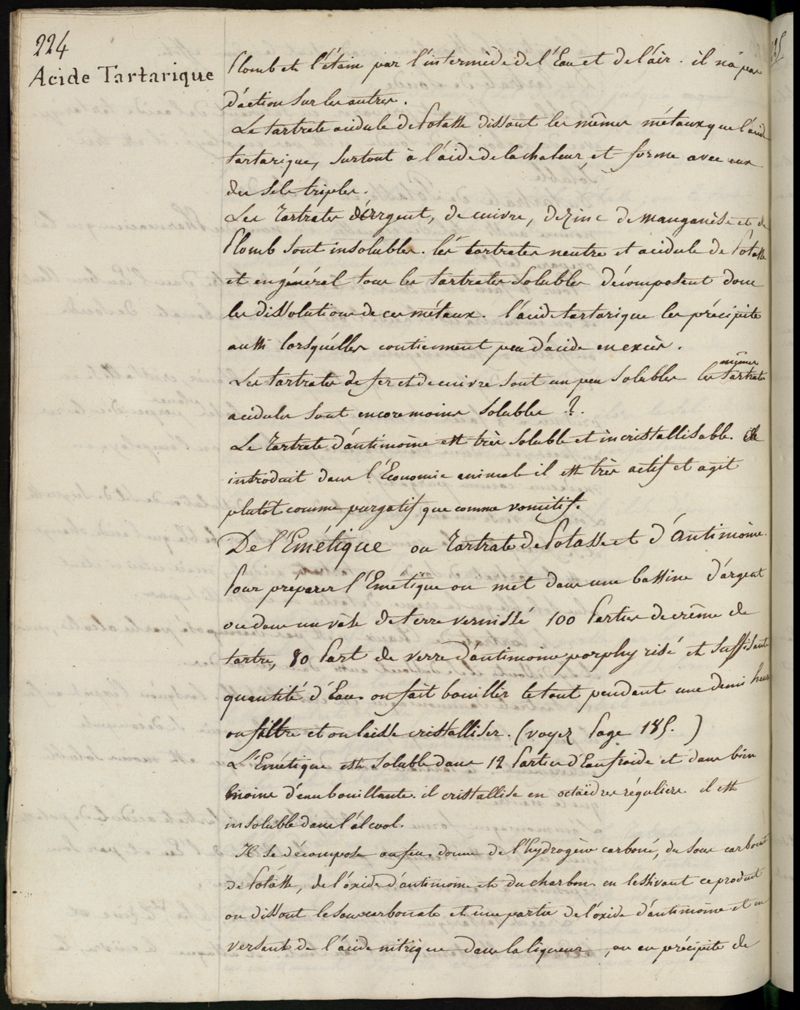 224
Acide Tartarique
Plomb et l'étain par l'intermède de l'Eau et de l'air. il n'a pas
d'action sur les autres.
Le tartrate acidule de Potasse dissout les mêmes métaux que l'acide
tartarique, surtout à l'aide de la chaleur, et forme avec eux
des sels triples.
Les Tartrates d'Argent, de cuivre, de Zinc de manganèse et de
Plomb sont insolubles. les tartrates neutre et acidule de Potasse
et en général tous les tartrates solubles décomposent donc
les dissolutions de ces métaux. l'acide tartarique les précipite
aussi lorsqu'elles contiennent peu d'acide en excès.
Les tartrates de fer et de cuivre sont un peu solubles les mêmes tartrates
acidules sont encore moins solubles ?.
Le Tartrate d'antimoine est très soluble et incristallisable.
introduit dans l'Economie animale il est très actif et agit
plutôt comme purgatif que comme vomitif.
De l'Emétique ou Tartrate de Potasse et d'Antimoine.
Pour préparer l'Emétique on met dans une bassine d'argent
ou dans un vase de terre vernissé 100 Parties de crême de
tartre, 80 Part de verre d'antimoine porphyrisé et suffisante
quantité d'Eau on fait bouillir le tout pendant une demi heure
on filtre et on laisse cristalliser. (voyez Page 185.)
L'Emétique est soluble dans 12 Parties d'Eau froide et dans bien
moins d'eau bouillante. il cristallise en octaèdres réguliers il est
insoluble dans l'alcool.
Il se décompose au feu. donne de l'hydrogène carboné, du sous carbonate
de Potasse, de l'oxide d'antimoine et du charbon en lessivant ce produit
on dissout le sous carbonate et une partie de l'oxide d'antimoine et en
versant de l'acide nitrique dans la liqueur, on en précipite de